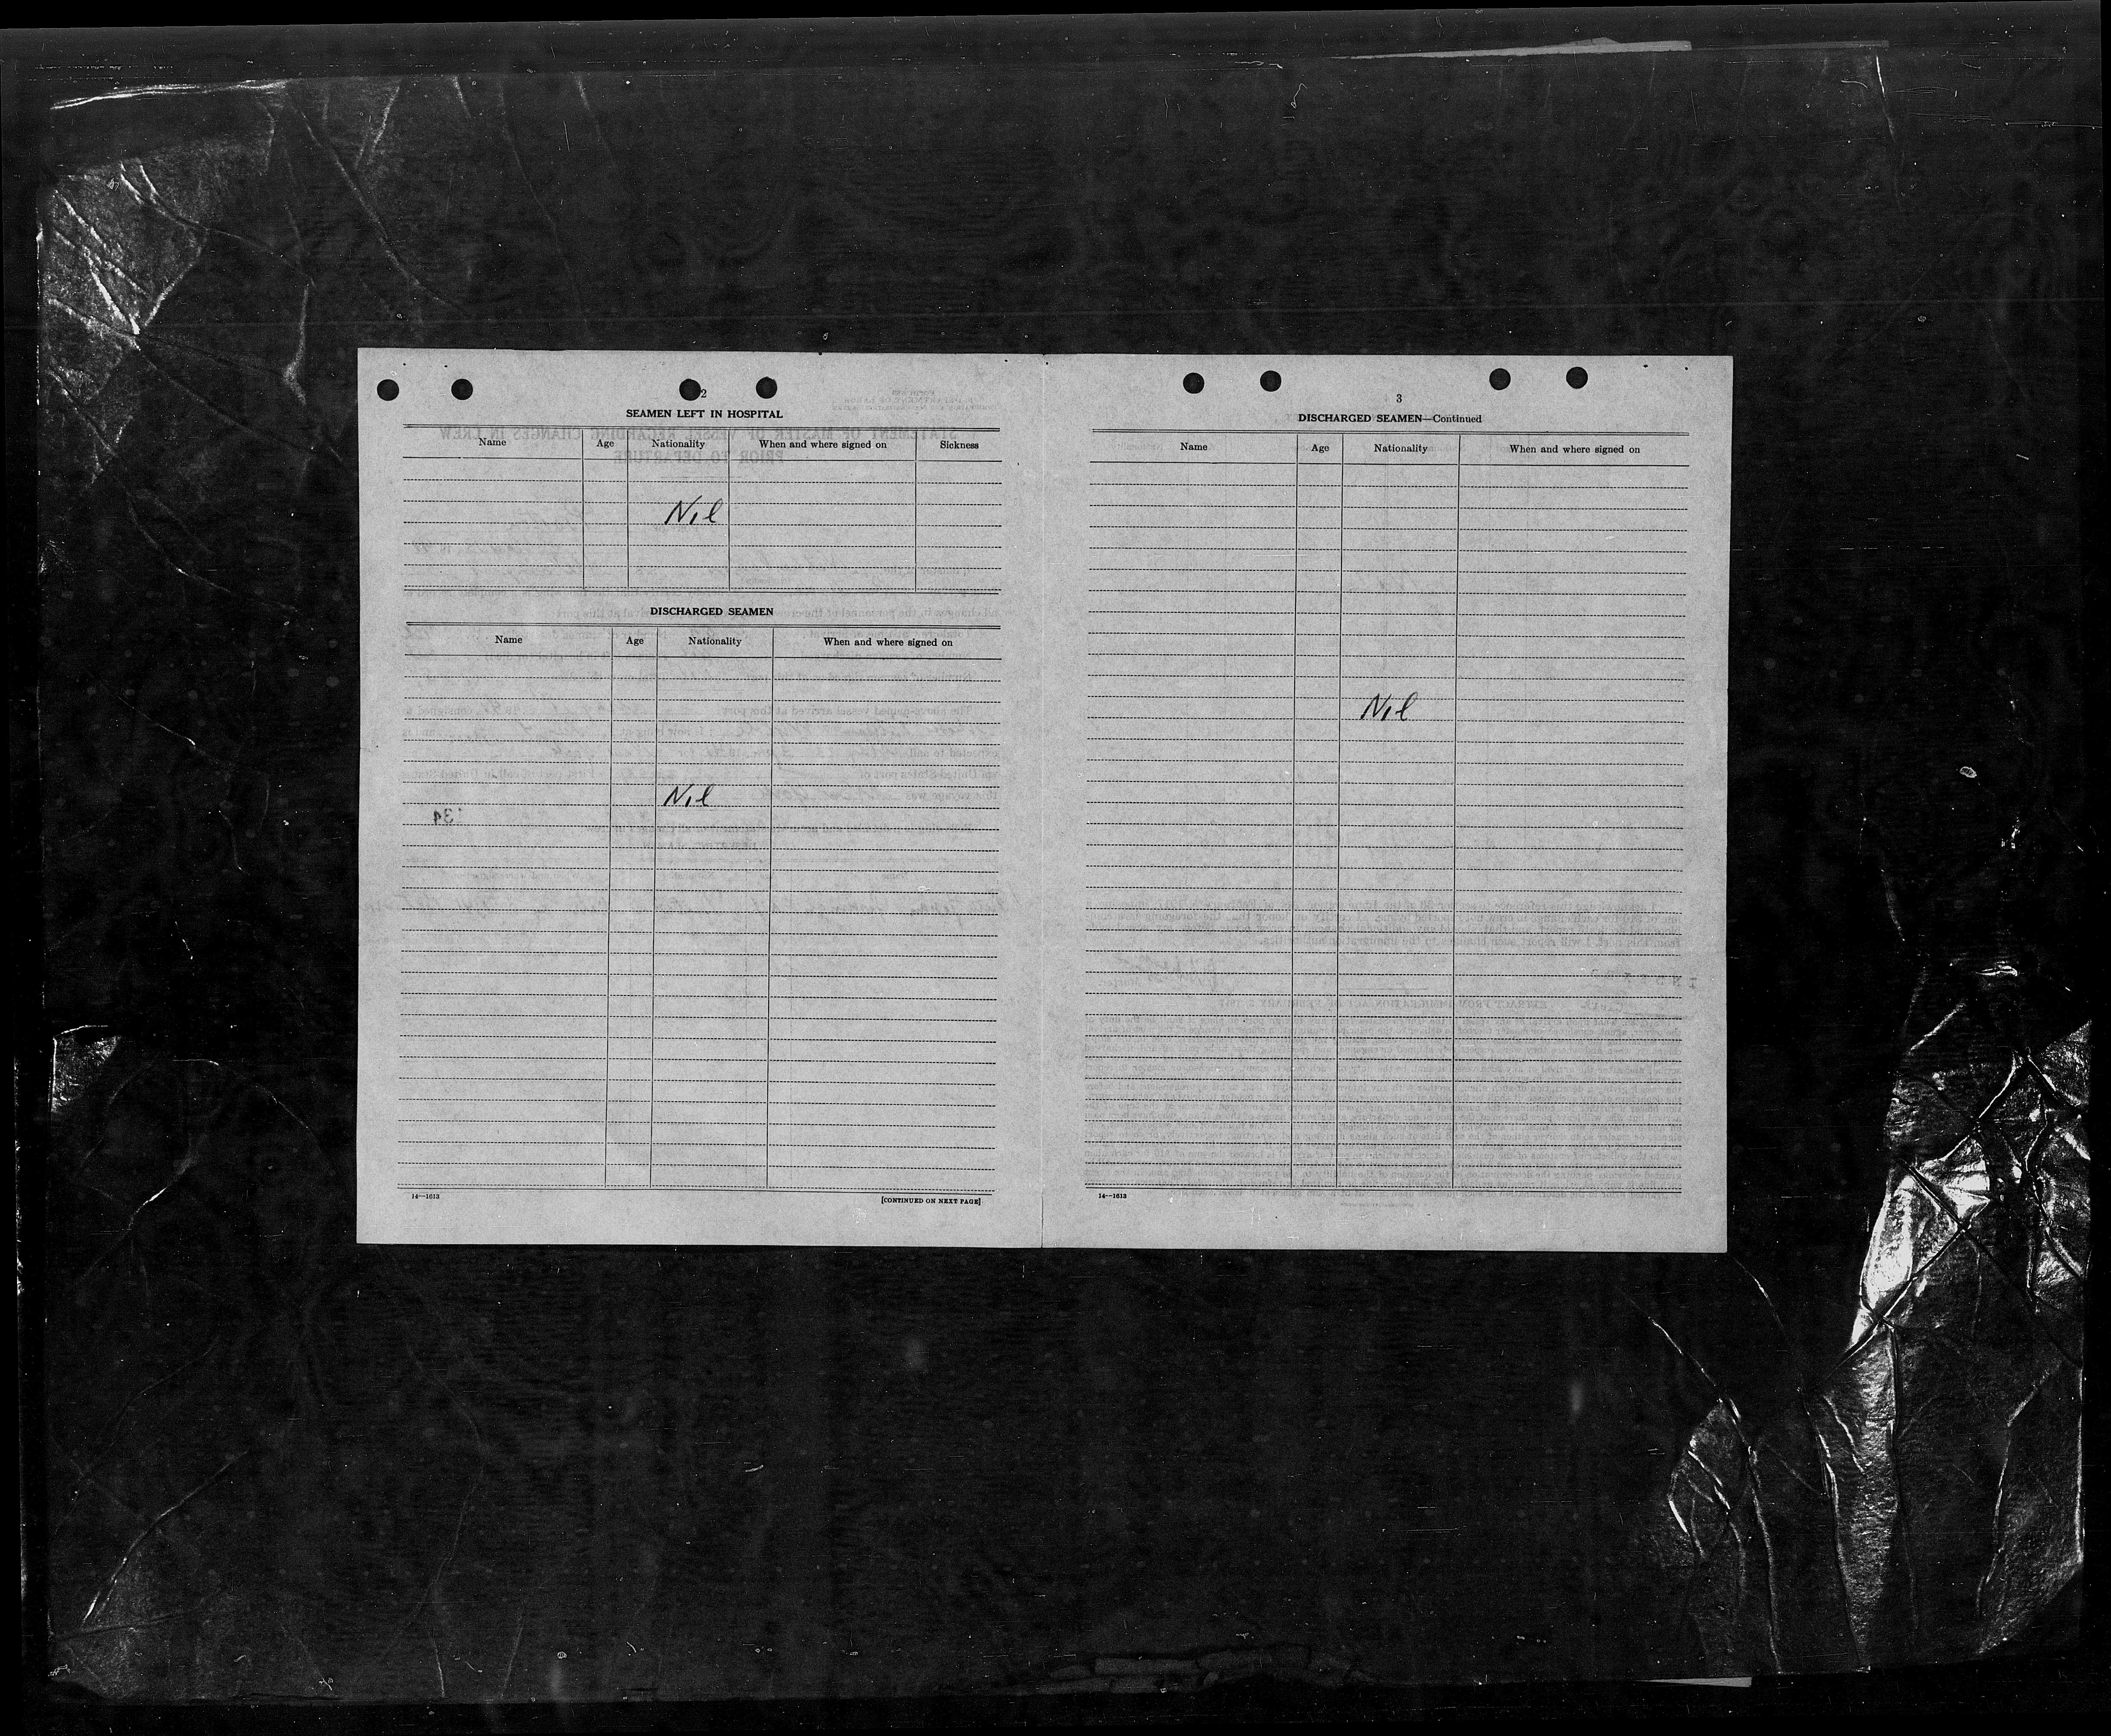 2
SEAMEN LEFT IN HOSPITAL
Name Age Nationality When and where signed on Sickness
Nil
DISCHARGED SEAMEN
Name Age Nationality When and where signed on
Nil
14—1613 [CONTINUED ON NEXT PAGE]
3
DISCHARGED SEAMEN—Continued
Name Age Nationality When and where signed on
Nil
14—1613